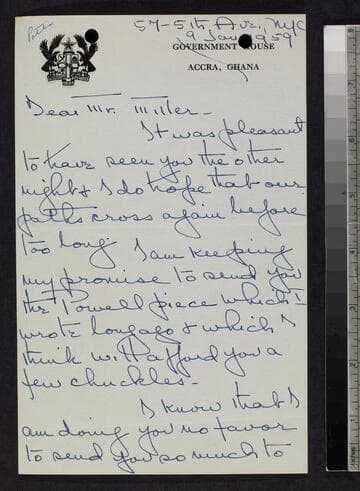 57-5th Ave, NYC
9 Jan 1959
GOVERNMENT HOUSE
ACCRA, GHANA
Dear Mr. Miller-
It was pleasant
to have seen you the other
night & I do hope that our
paths cross again before
too long I am keeping
my promise to send you
the Powell piece which I
wrote long ago & which I
think will afford you a
few chuckles-
I know that I
am doing you no favor
to send you so much to